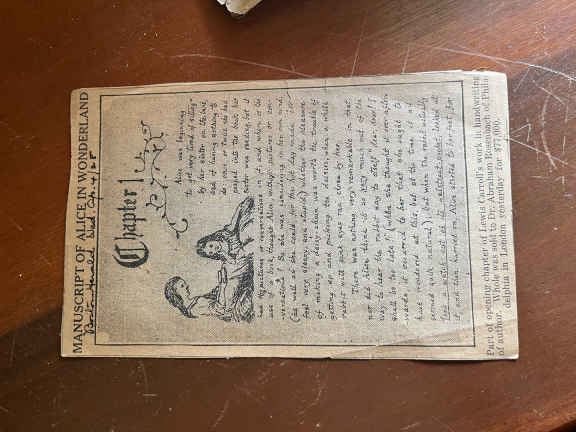 MANUSCRIPT OF ALICE IN WONDERLAND
Boston Herald Wed Apr 4/28
Chapter 1
Alice was beginning
to get very tired of sitting
by her sister on the bank,
and of having nothing to
do: once or twice she had
peeped into the book her
sister was reading, but it
had no pictures or conversations in it, and where is the
use of a book, thought Alice, without pictures or con-
-versations? So she was considering in her own mind,
(as well as she could, for the hot day made her
feel very sleepy and stupid,) whether the pleasure
of making a daisy-chain was worth the trouble of
getting up and picking the daisies, when a white
rabbit with pink eyes ran close by her.
There was nothing very remarkable in that,
nor did Alice think it so very much out of the
way to hear the rabbit say to itself "dear, dear! I
shall be too late!" (when she thought it over after-
-wards, it occurred to her that she ought to
have wondered at this, but at the time it all
seemed quite natural); but when the rabbit actually
took a watch out of its waistcoat-pocket, looked at
it, and then hurried on, Alice started to her feet, for
Part of opening chapter of Lewis Carroll's work in handwriting
of author. Whole was sold to Dr. Abraham Rosenbach of Phila-
delphia in London yesterday for $77,000.